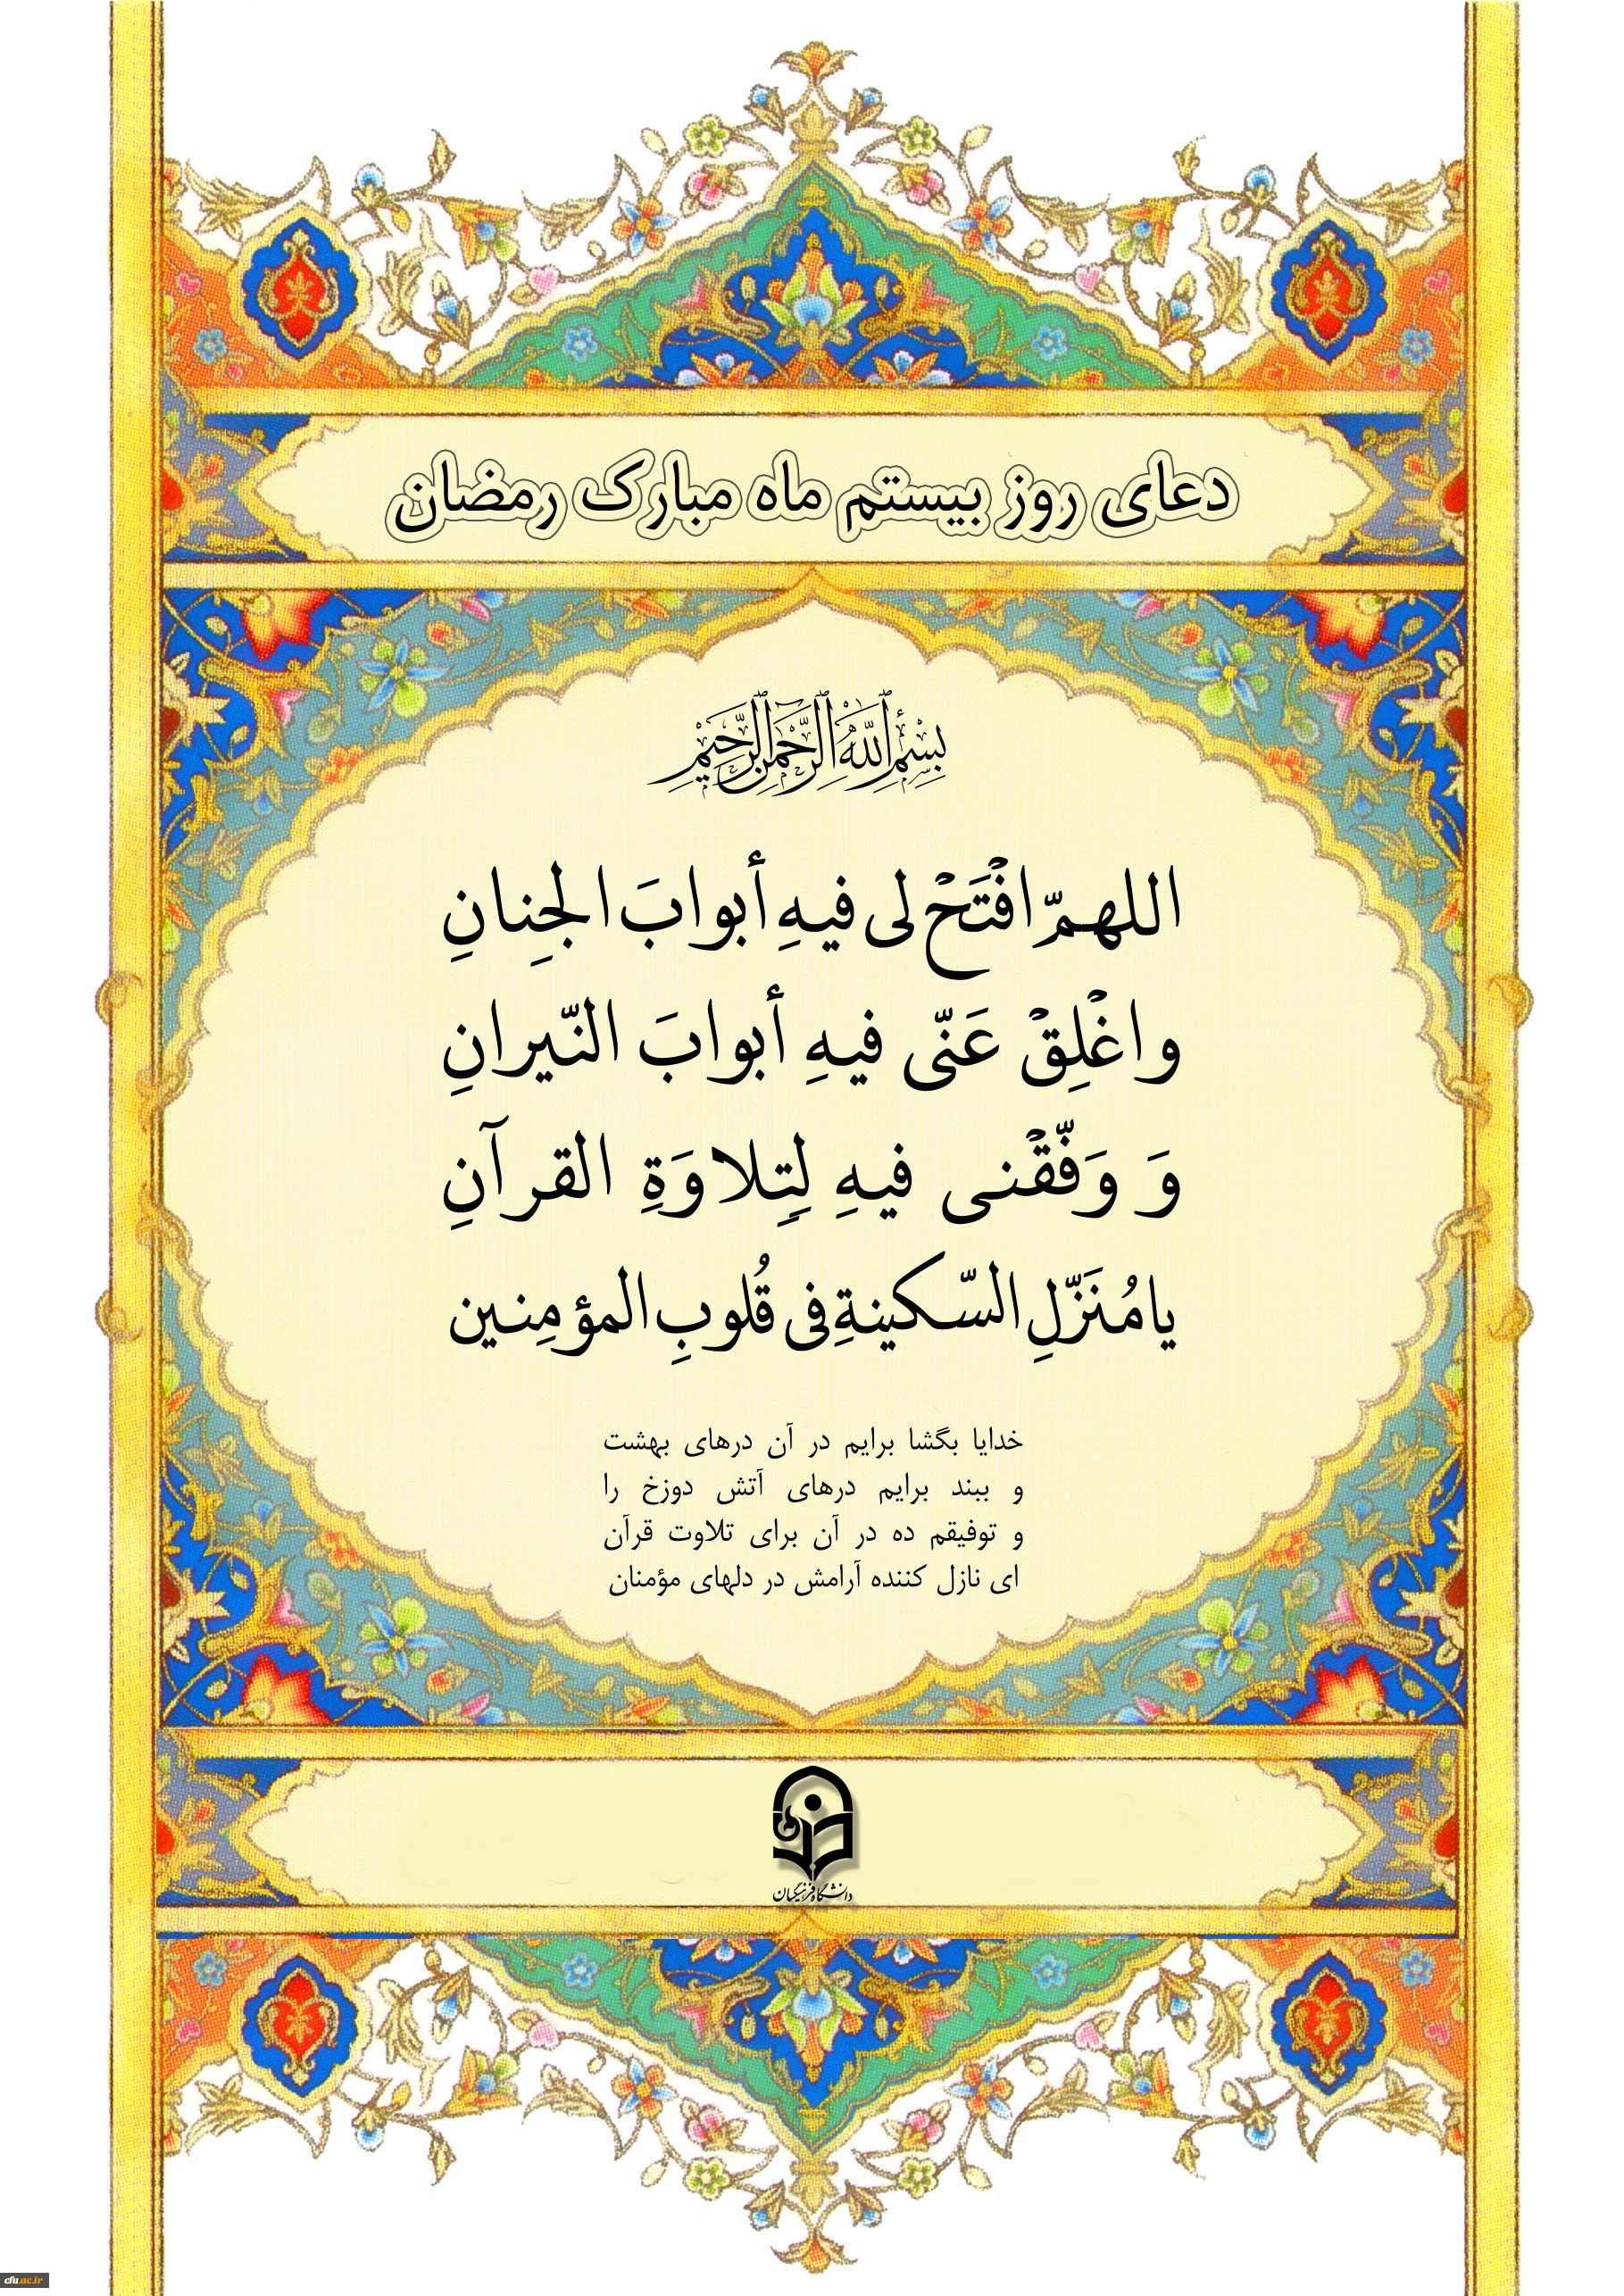 دعای روز بیستم ماه مبارک رمضان
بِسْمِ ٱللَّهِ ٱلرَّحْمَٰنِ ٱلرَّحِيمِ
اللهمّ افْتَحْ لی فیهِ أبوابَ الجِنانِ
واغْلِقْ عَنّی فیهِ أبوابَ النّیرانِ
وَ وَفّقْنی فیهِ لِتِلاوَةِ القرآنِ
یا مُنَزّلِ السّکینةِ فی قُلوبِ المؤمِنین
خدایا بگشا برایم در آن درهای بهشت
و ببند برایم درهای آتش دوزخ را
و توفیقم ده در آن برای تلاوت قرآن
ای نازل کننده آرامش در دلهای مؤمنان
دانشگاه فرهنگیان
cfu.ac.ir